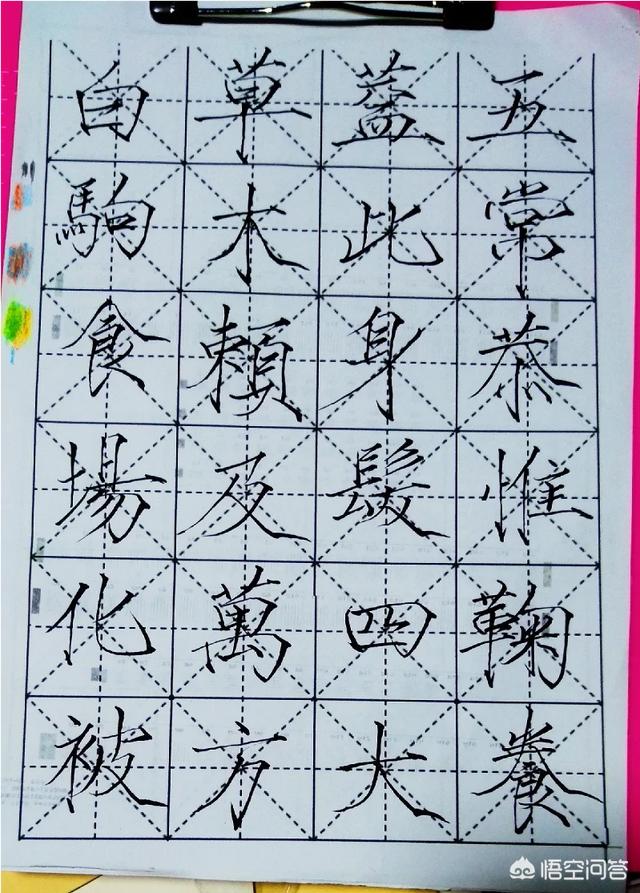 白駒食場化被
草木賴及萬方
蓋此身髮四大
五常恭惟鞠養
悟空问答